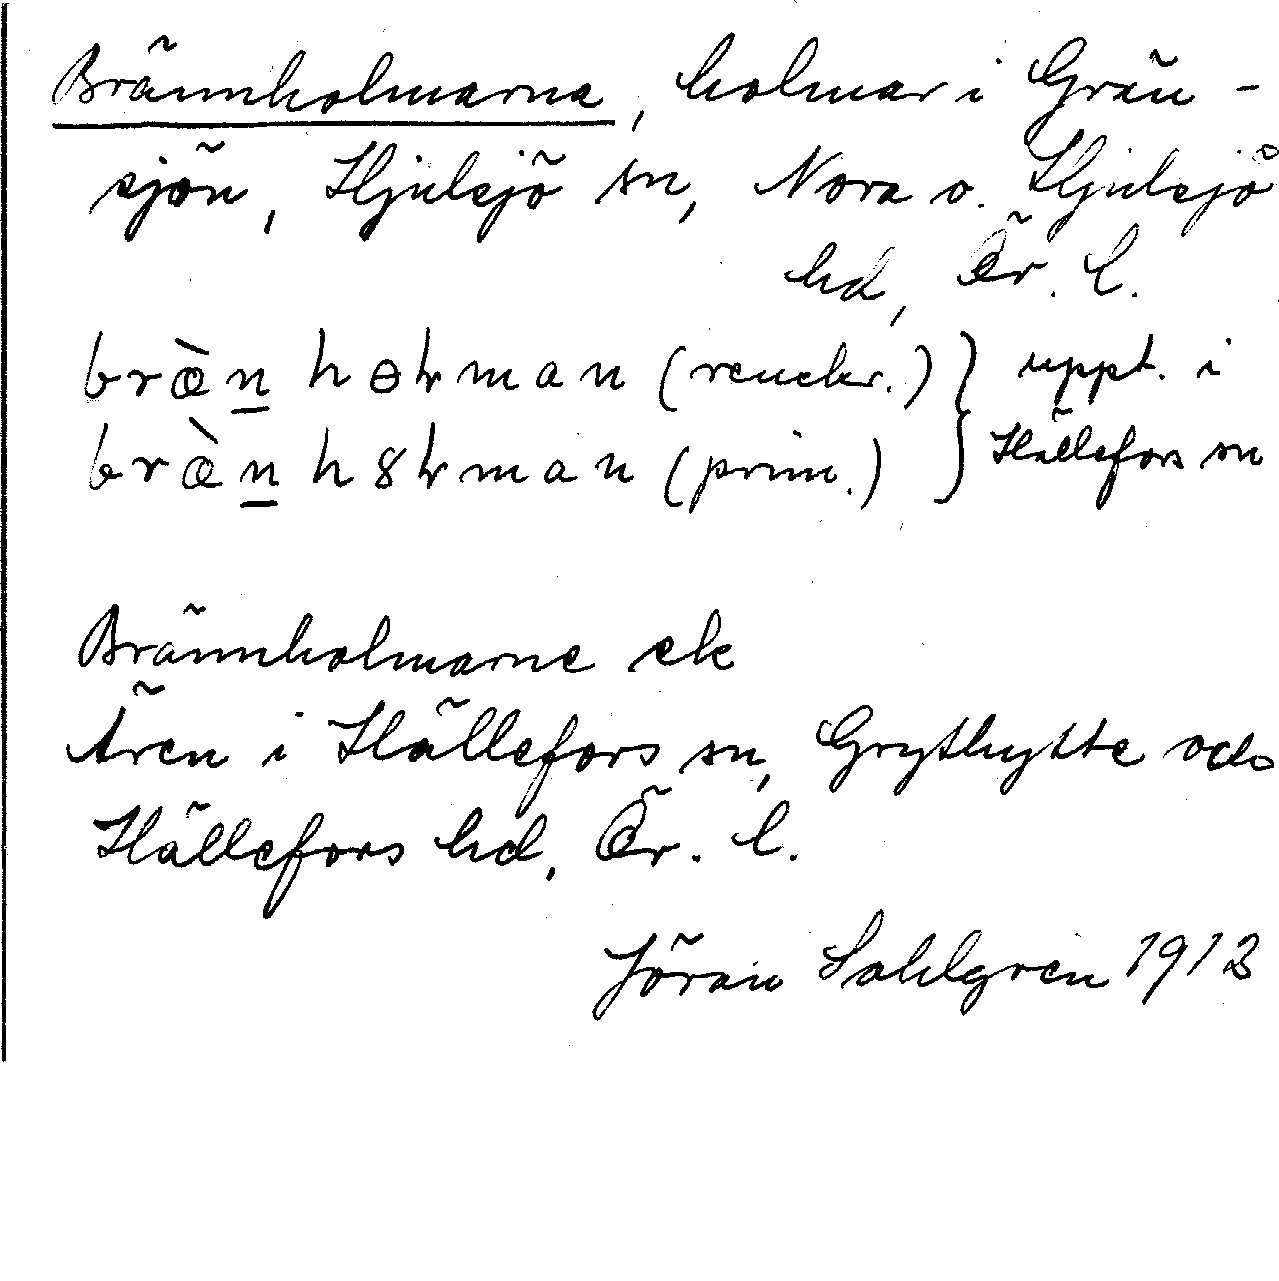 Brännholmarna, holmar i Grän-
sjön, Hjulsjö sn, Nora o. Hjulsjö
hd, Ör. l.
bræ̀n hɵɫman (renckr.) } uppt. i
bræ̀n h8ɫman (prim.) } Hällefors sn
Brännholmarne ek
Ären i Hällefors sn, Grythytte ock
Hällefors hd, Ör. l.
Jöran Sahlgren 1913